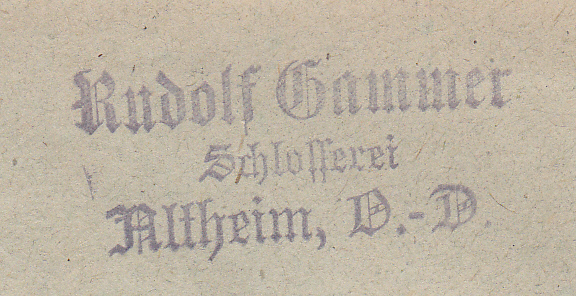 Rudolf Gammer
Schlosserei
Altheim, O.-D.